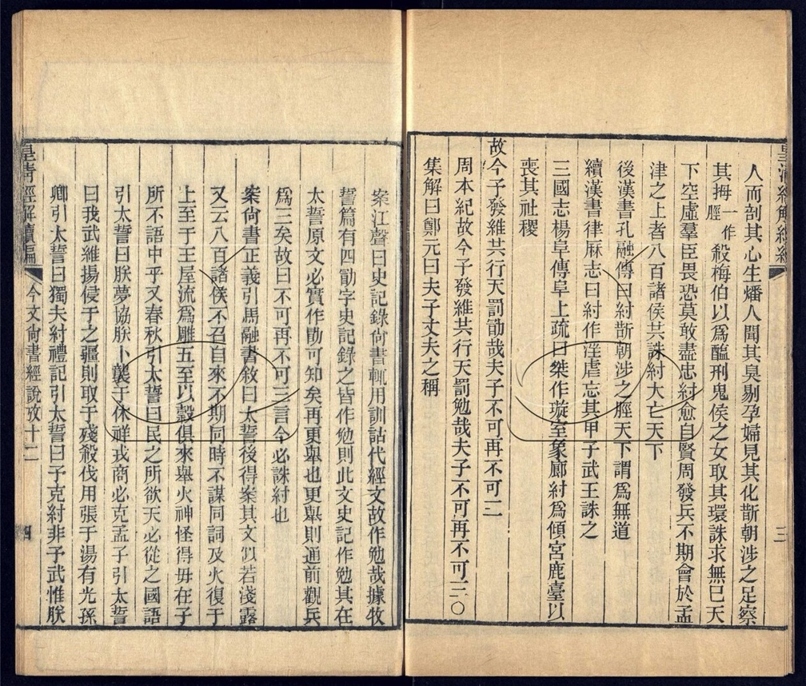 人而剖其心生燔人聞其臭剔孕婦見其化斮朝涉之足察
其拇一作脛殺梅伯以為醢刑鬼侯之女取其環誅求無已天
下空虛羣臣畏恐莫敢盡忠紂愈自賢周發兵不期會於孟
津之上者八百諸侯共誅紂大亡天下
後漢書孔融傳曰紂斮朝涉之脛天下謂為無道
續漢書律厤志曰紂作淫虐忘其甲子武王誅之
三國志楊阜傳阜上疏曰桀作璇室象廊紂為傾宮鹿臺以
喪其社稷
故今予發維共行天罰勖哉夫子不可再不可三
周本紀故今予發維共行天罰勉哉夫子不可再不可三〇
集解曰鄭元曰夫子丈夫之稱
三
案江聲曰史記錄尚書輒用訓詁代經文故作勉哉據牧
誓篇有四勖字史記錄之皆作勉則此文史記作勉其在
太誓原文必實作勖可知矣再更舉也更舉則通前觀兵
為三矣故曰不可再不可三言今必誅紂也
案尚書正義引馬融書敘曰太誓後得案其文似若淺露
又云八百諸侯不召自來不期同時不謀同詞及火復于
上至于王屋流為雕五至以穀俱來舉火神怪得毋在子
所不語中乎又春秋引太誓曰民之所欲天必從之國語
引太誓曰朕夢協朕卜襲于休祥戎商必克孟子引太誓
曰我武維揚侵于之疆則取于殘殺伐用張于湯有光孫
卿引太誓曰獨夫紂禮記引太誓曰予克紂非予武惟朕
皇清經解續編 今文尚書經說攷十二 四